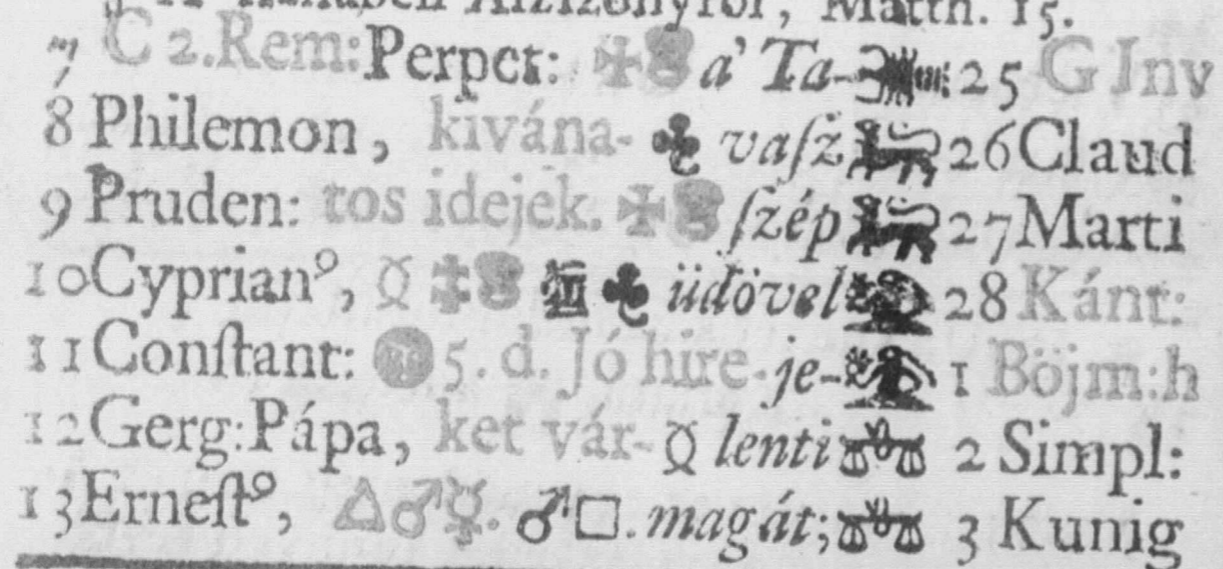 Matth. 15.
7 C 2.Rem:Perpet: a' Ta- 25 G Inv
8 Philemon, kivána- ☋ vaſz 26 Claud
9 Pruden: tos idejek. ſzép 27 Marti
10 Cyprianꝰ, üdövel 28 Kánt:
11 Conſtant: 5. d. Jó hire- je- 1 Böjm:h
12 Gerg:Pápa, ket vár- lenti 2 Simpl:
13 Erneſtꝰ, △♂☿. ♂□. magát; 3 Kunig